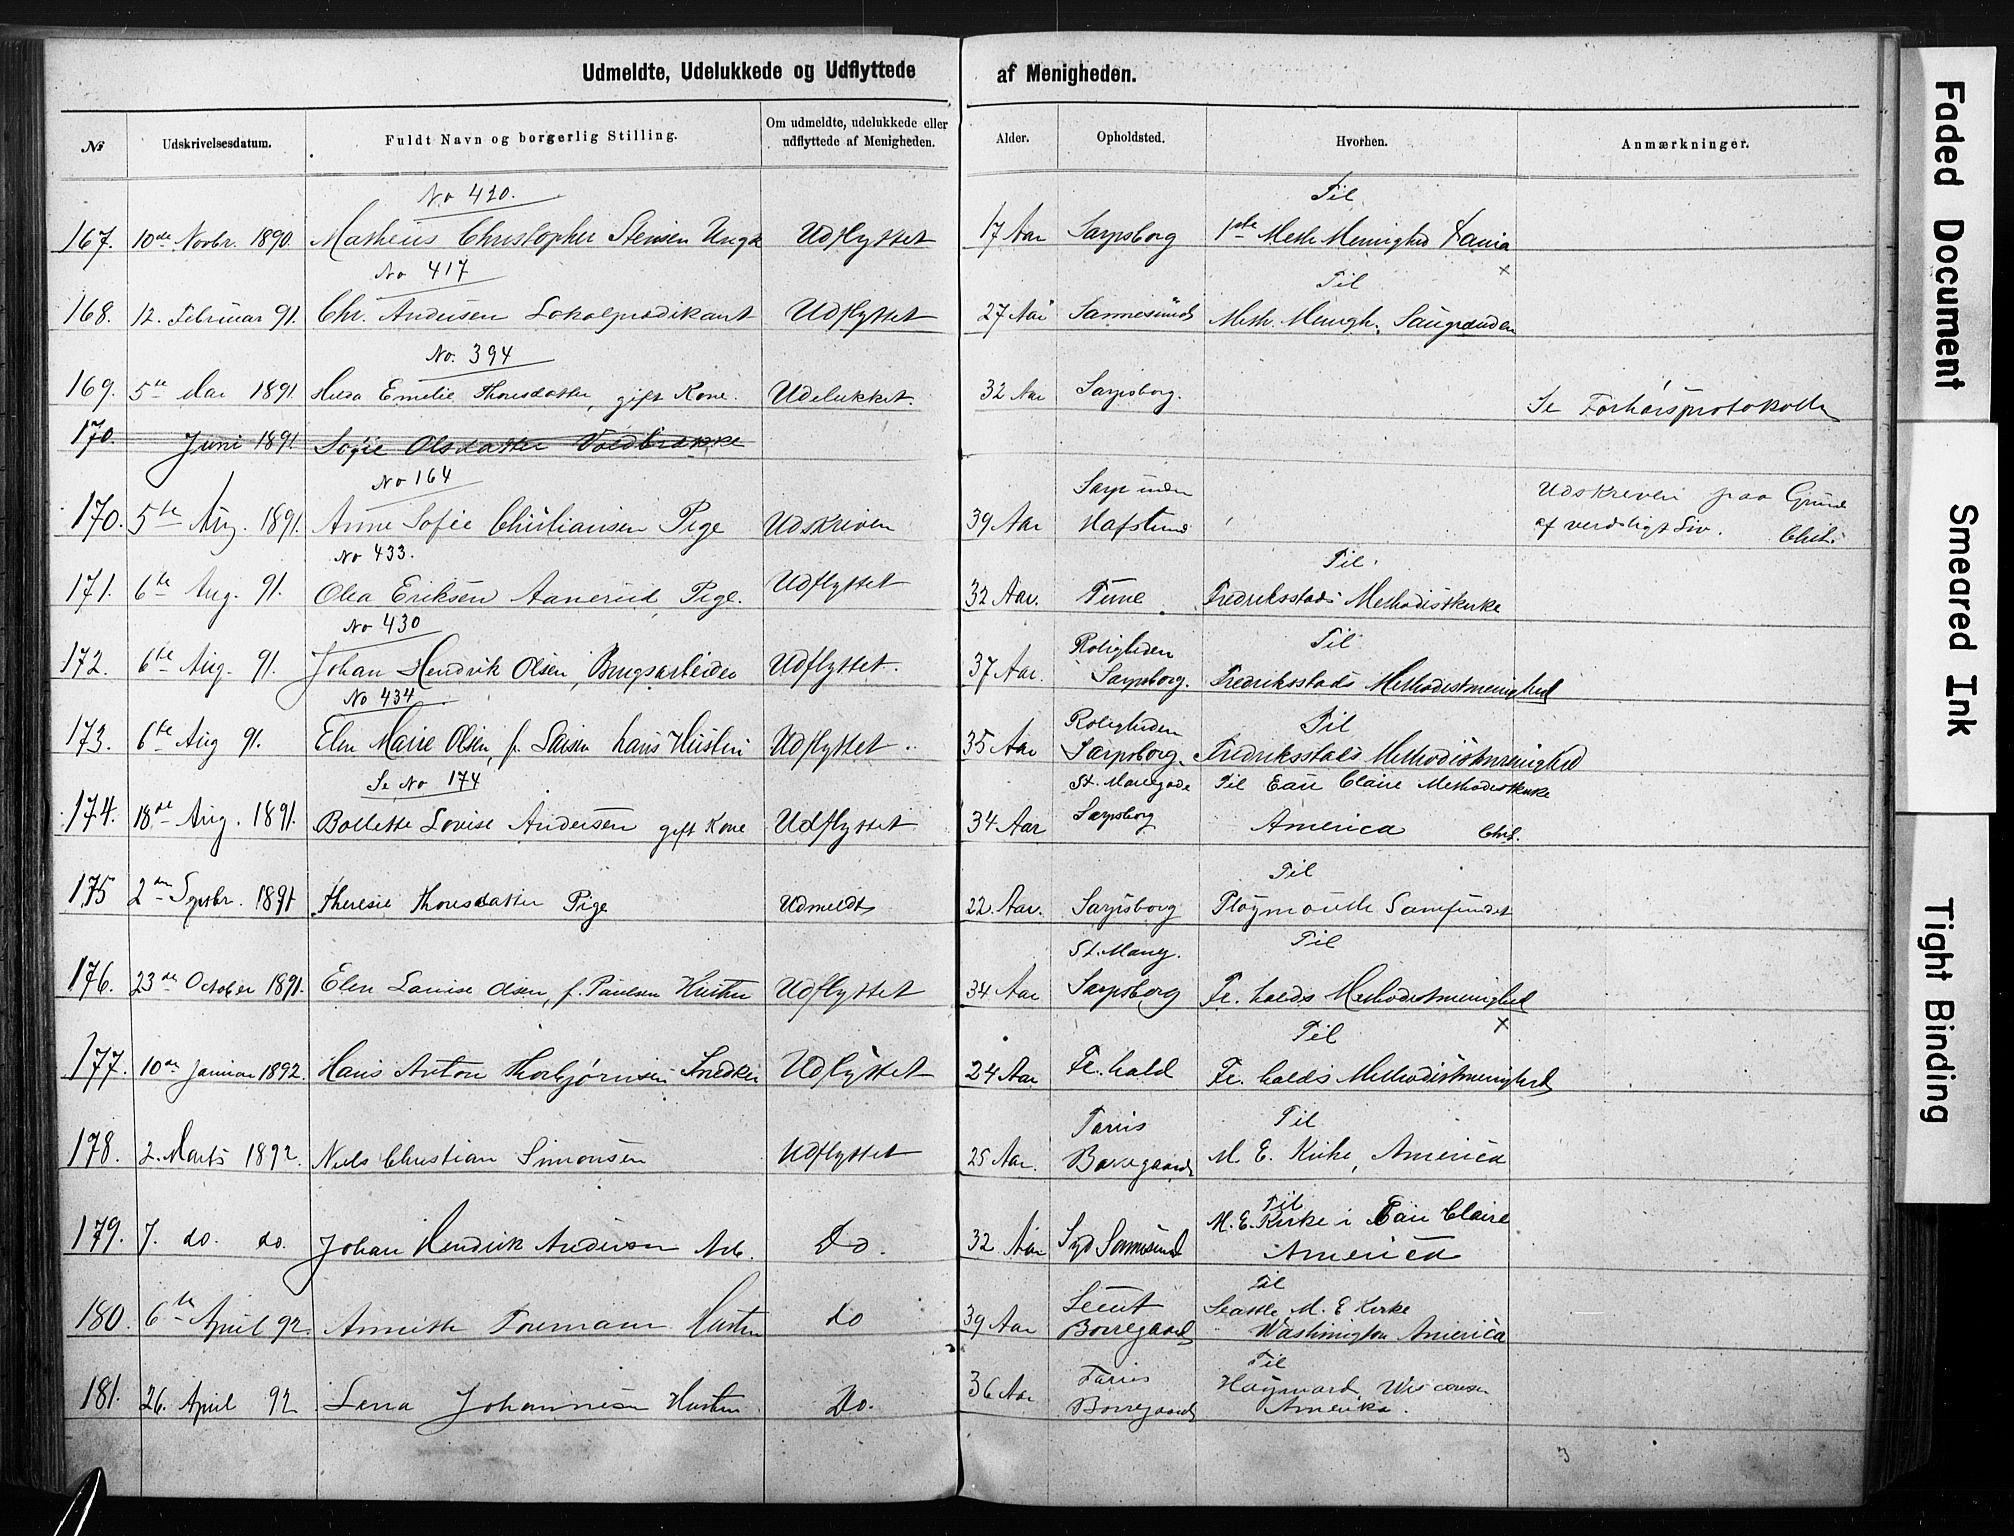 Udmeldte, Udelukkede og Udflyttede af Menigheden.
№ Udskrivelsesdatum. Fuldt Navn og borgerlig Stilling. Om udmeldte, udelukkede eller udflyttede af Menigheden. Alder. Opholdsted. Hvorhen. Anmærkninger.
No 420. Til
167. 10de Novbr. 1890. Matheus Christopher Stensen Udflyttet 17 Aar Sarpsborg 1ste Meth Menighed
No 417 Til
168. 12. Februar 91. Chr. Andersen Lokalprædikant Udflyttet 27 Aar Sannesund Meth. Menigh.
No. 394
169. 5te Mai 1891. Hilda Emelie Thorsdatter, gift Kone. Udelukket. 32 Aar Sarpsborg. Se Forhørsprotokollen
170. Juni 1891. Sofie Olsdatter
No 164 Sarp inden Udskreven paa Grund
170. 5te Aug. 1891. Anne Sofie Christiansen Pige Udskreven 39 Aar Hafslund af verdsligt Liv. Chr.
No 433. Til
171. 6te Aug. 91. Olea Eriksen Aanerud Pige. Udflyttet 32 Aar. Tune Fredriksstads Methodistkirke
No 430 Roligheden Til
172. 6te Aug. 91. Johan Hendrik Olsen, Brugsarbeider Udflyttet. 37 Aar. Sarpsborg. Fredriksstads Methodistmenighed
No 434 Roligheden Til
173. 6te Aug 91. Elen Marie Olsen, f. Larsen hans Hustru Udflyttet 35 Aar Sarpsborg. Fredriksstads Methodistmenighed
Se No 174 St. Mariegade Til Eau Claire Methodistkirke
174. 18de Aug. 1891. Bollette Lovise Andersen gift Kone Udflyttet 34 Aar Sarpsborg America Chr.
Til
175 2den Septbr. 1891 Theresie Thorsdatter Pige Udmeldt 22 Aar. Sarpsborg Pløymouth Samfundet
St. Marieg. Til
176. 23de October 1891. Elen Lovise Olsen, f. Paulsen Hustru Udflyttet 34 Aar Sarpsborg Fr. halds Methodistmenighed
Til
177. 10de Januar 1892. Hans Anton Thorbjørnsen Snedker Udflyttet 24 Aar Fr. hald Fr. halds Methodistmenighed
Farris Til
178. 2. Marts 1892. Niels Christian Simonsen Udflyttet 25 Aar. Borregaard M. E. Kirke, America
Til
179. 7. do. do. Johan Hendrik Andersen Arb. Do. 32 Aar Syd Sannesund M. E. Kirke i Eau Claire
America
Til
180. 6te April 92. Annette Foremann Hustru do 39 Aar Borregaard Seattle M. E Kirke
Washington America
Farris Til
181. 26. April 92 Lena Johannesen Hustru Do. 36 Aar Borregaard Hayward, Wisconsin
Amerika.
Faded Document
Smeared Ink
Tight Binding